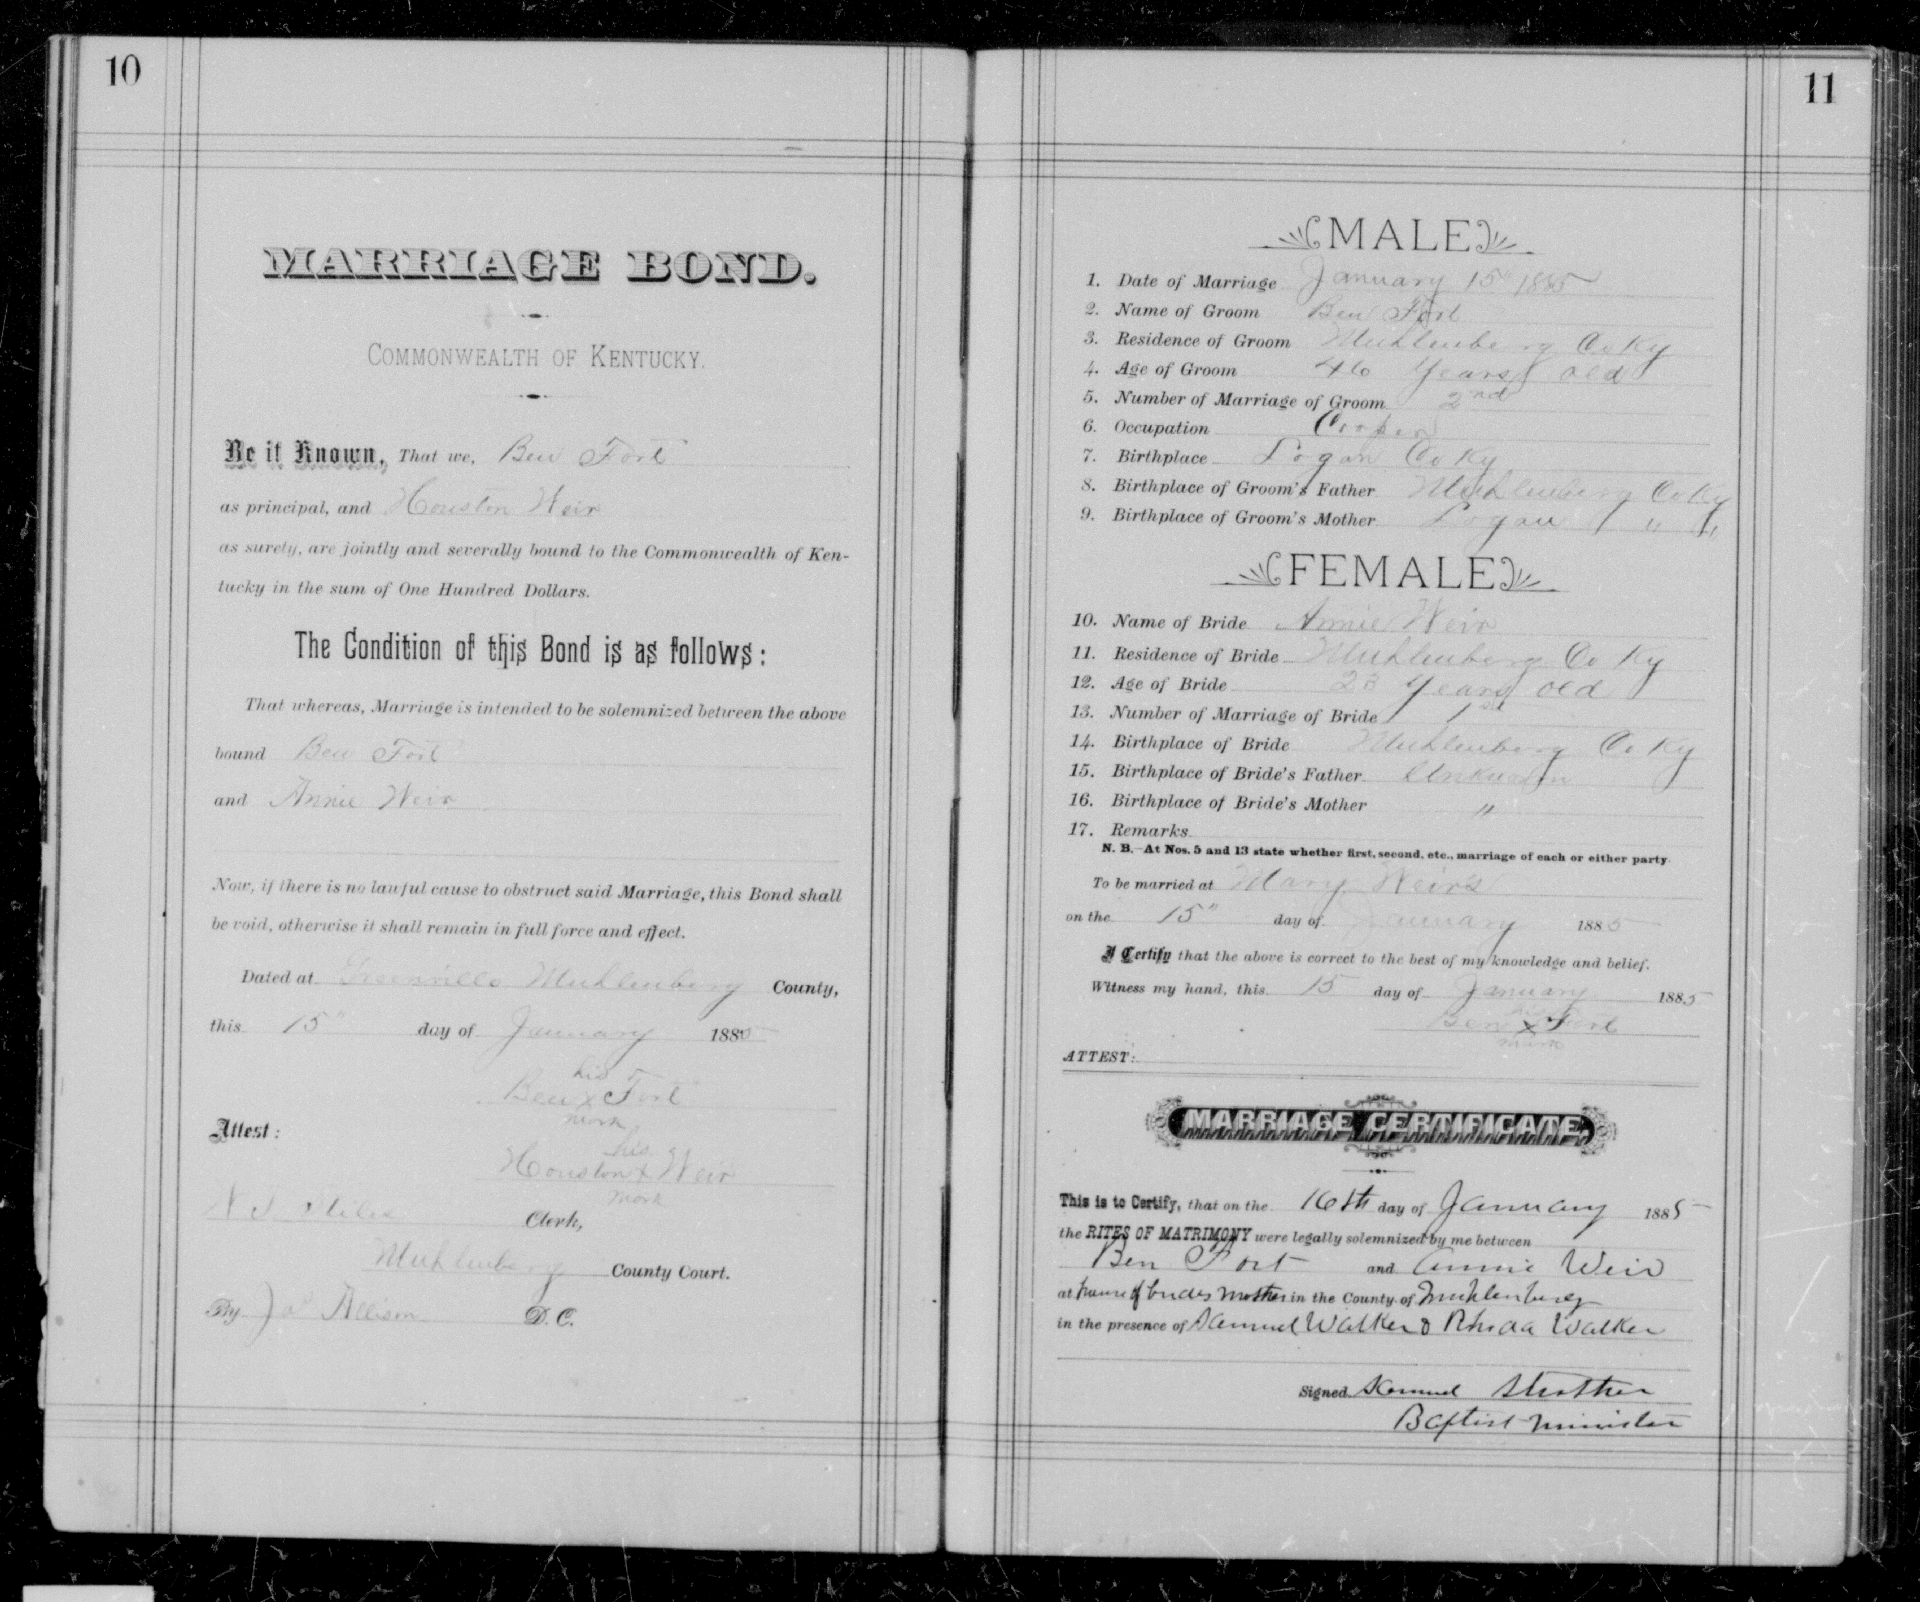 10
MARRIAGE BOND.
COMMONWEALTH OF KENTUCKY.
Be it Known, That we, Ben Fort
as principal, and Houston Weir
as surety, are jointly and severally bound to the Commonwealth of Ken-
tucky in the sum of One Hundred Dollars.
The Condition of this Bond is as follows:
That whereas, Marriage is intended to be solemnized between the above
bound Ben Fort
and Annie Weir
Now, if there is no lawful cause to obstruct said Marriage, this Bond shall
be void, otherwise it shall remain in full force and effect.
Dated at Greenville Muhlenberg County,
this 15" day of January 1885
his
Ben x Fort
mark
Attest:
his
Houston x Weir
mark
Clerk,
Muhlenberg County Court.
By Jas Allison D. C.
11
MALE
1. Date of Marriage January 15" 1885
2. Name of Groom Ben Fort
3. Residence of Groom Muhlenberg Co Ky
4. Age of Groom 46 Years old
5. Number of Marriage of Groom 2nd
6. Occupation Cooper
7. Birthplace Logan Co Ky
8. Birthplace of Groom's Father Muhlenberg Co Ky
9. Birthplace of Groom's Mother Logan " "
FEMALE
10. Name of Bride Annie Weir
11. Residence of Bride Muhlenberg Co Ky
12. Age of Bride 23 Years old
13. Number of Marriage of Bride 1st
14. Birthplace of Bride Muhlenberg Co Ky
15. Birthplace of Bride's Father Unknown
16. Birthplace of Bride's Mother "
17. Remarks
N. B.—At Nos. 5 and 13 state whether first, second, etc., marriage of each or either party.
To be married at Mary Weirs
on the 15" day of January 1885
I Certify that the above is correct to the best of my knowledge and belief.
Witness my hand, this 15 day of January 1885
Ben x Fort
mark
ATTEST:
MARRIAGE CERTIFICATE.
This is to Certify, that on the 16th day of January 1885
the RITES OF MATRIMONY were legally solemnized by me between
Ben Fort and Annie Weir
at house of brides mother in the County of Muhlenberg
in the presence of Samuel Walker & Rhoda Walker
Signed Samuel Strother
Baptist minister